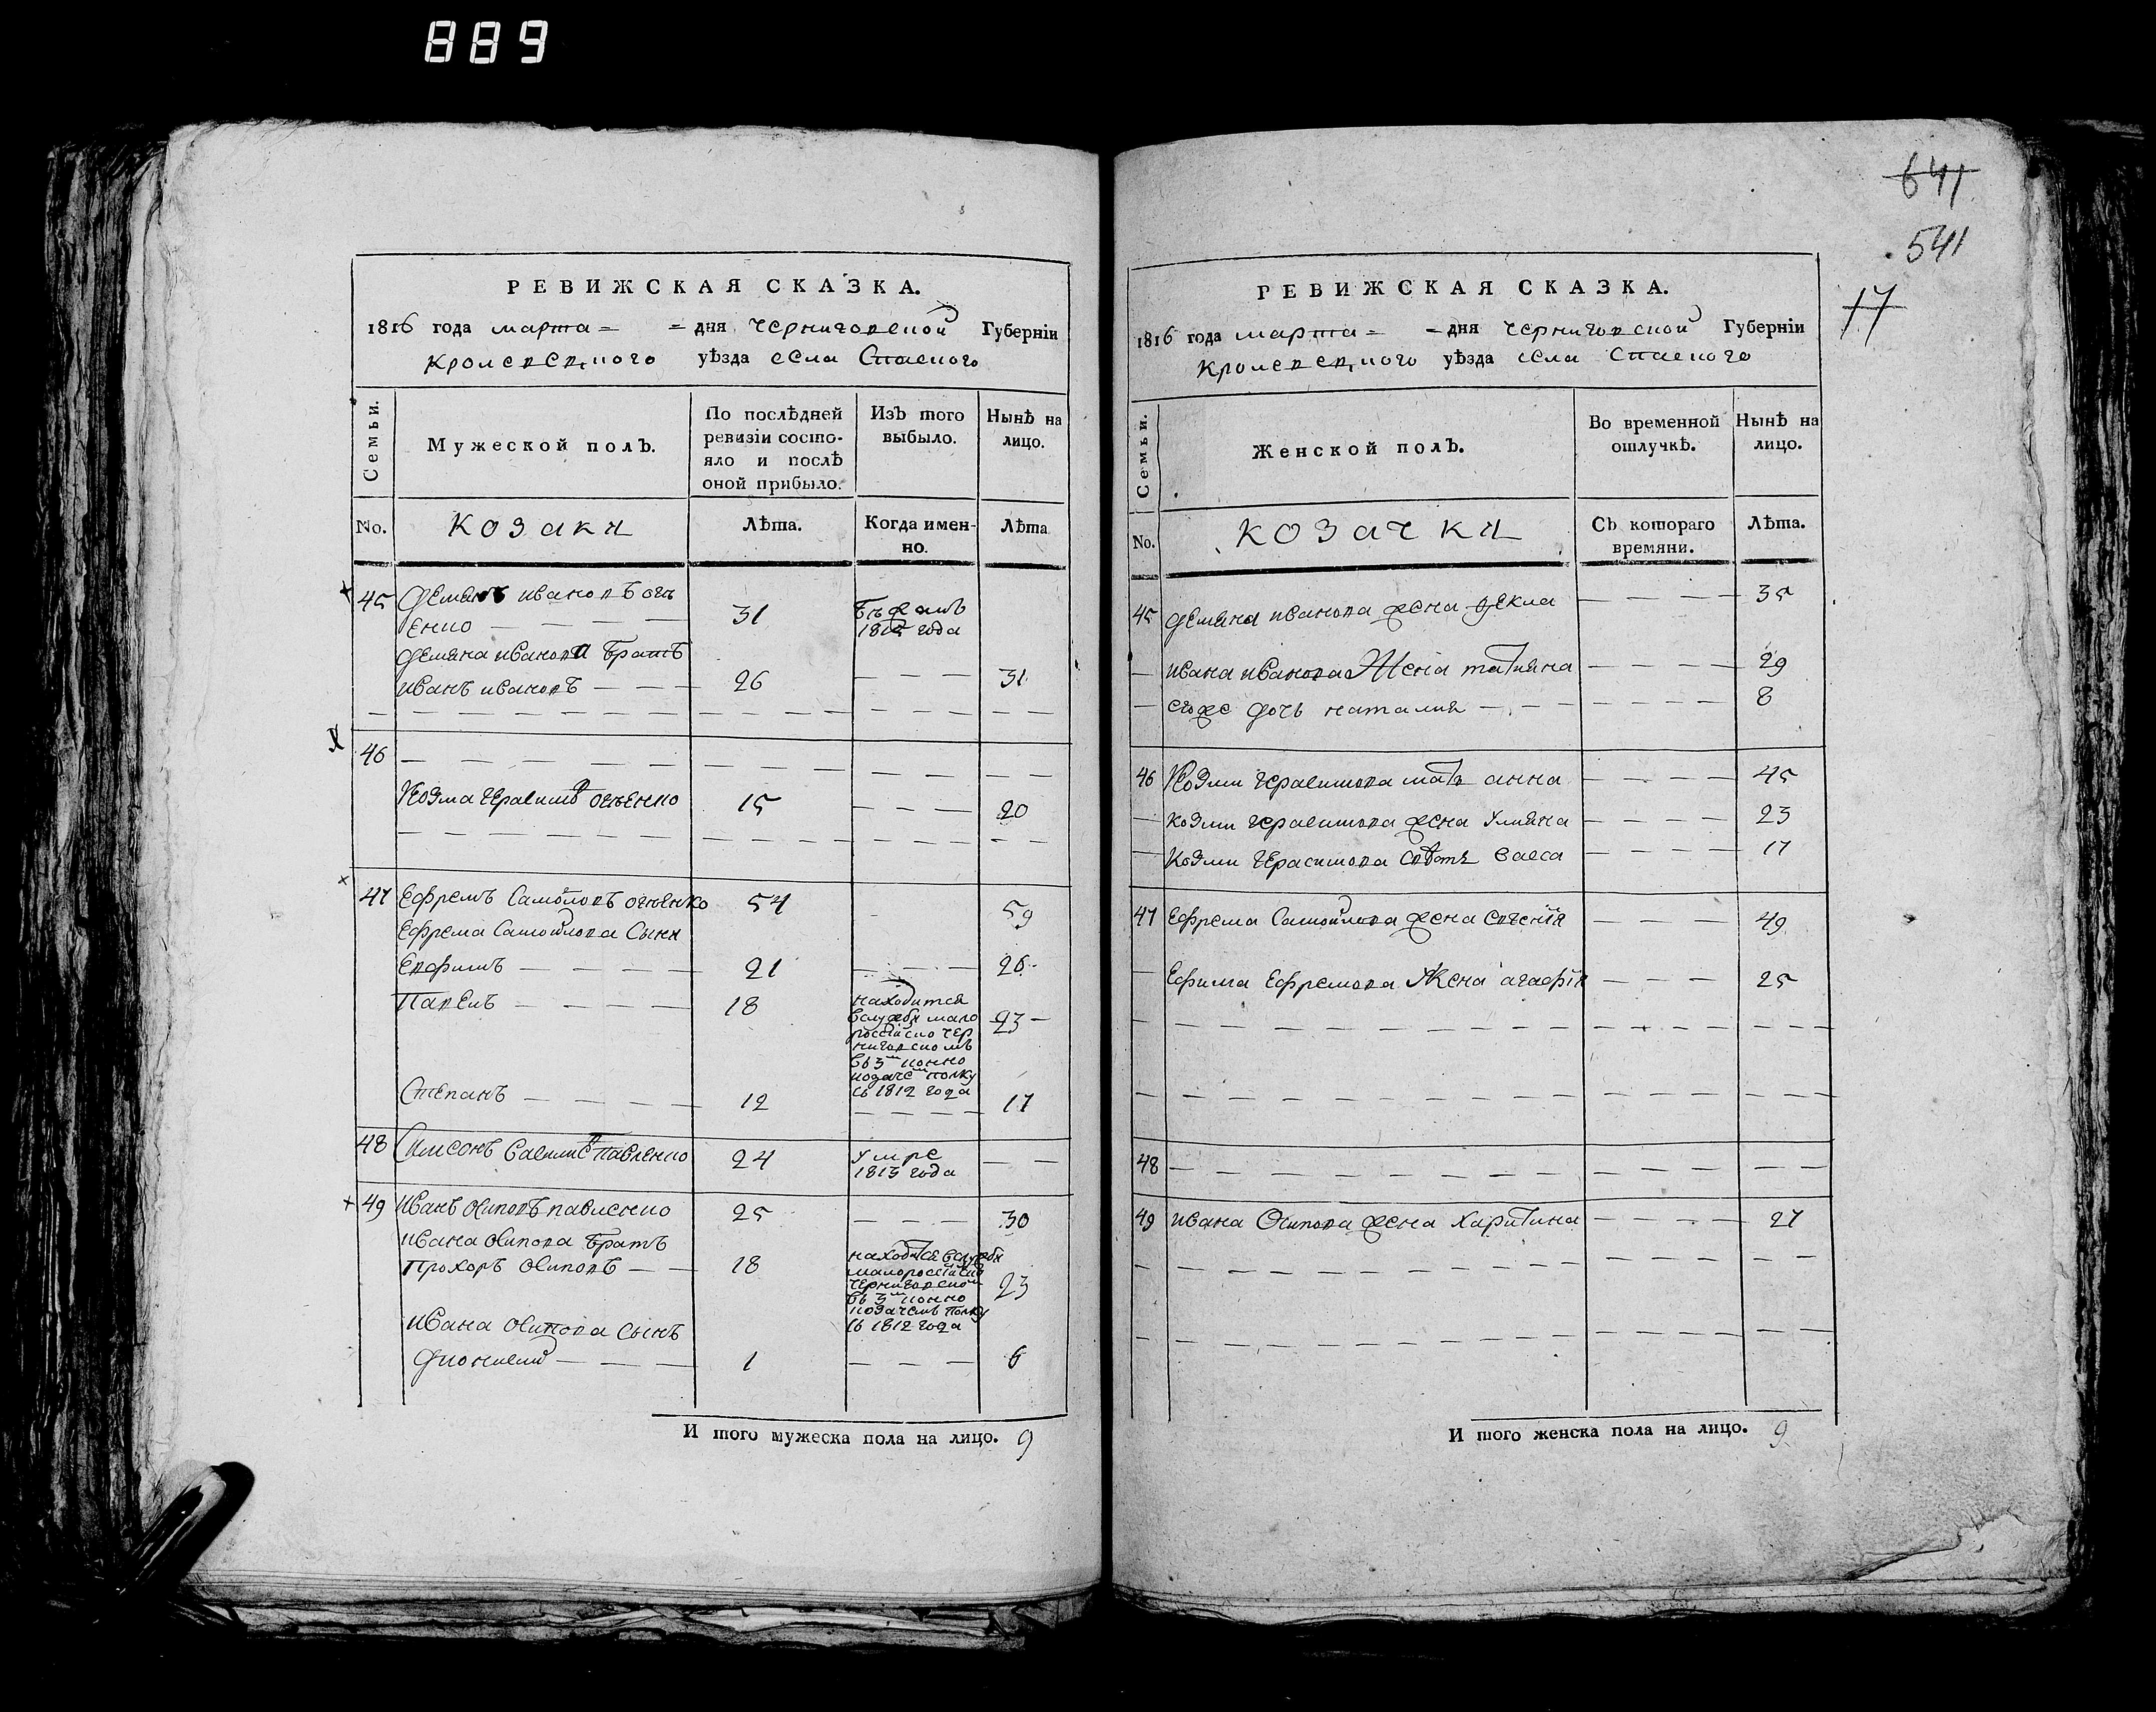 889
РЕВИЖСКАЯ СКАЗКА.
1816 года марта = = дня черниговской Губерніи
кролевецкого уѣзда села Спаского
Семьи.
Мужеской полъ.
По послѣдней ревизіи состо-
яло и послѣ
оной прибыло.
Изъ того
выбыло.
Нынѣ на
лицо.
No.
козаки
Лѣта.
Когда имен-
но.
Лѣта
45 Демянъ ивановъ огъ
енко — — — — 31
1812 года
Демяна иванова братъ
иванъ ивановъ — — — 26 — — — 31
46 — — — — — —
Козма герасимовъ огъенко 15 — — — 20
47 Ефремъ Самойловъ огиенко 54 59
Ефрема Самойлова Сыни
Евфимъ — — — — 21 — — — 26
Павелъ — — — — 18
находится
вслужбѣ мало
россійско чер
ниговскомъ
въ 3м конно
козачем полку
съ 1812 года
23 —
Степанъ — — — — 12 — — — — 17
48 Симеонъ павленко 24
умре
1813 года
— —
49 иванъ Осиповъ павленко 25 — — — 30
ивана Осипова братъ
прохоръ Осиповъ — — 18
находится вслужбѣ
малороссійско
черниговском
въ 3м конно
козачемъ полку
съ 1812 года
23
ивана Осипова Сынъ
Дионисий — — — — 1 — — — 6
И того мужеска пола на лицо. 9
641
541
17
РЕВИЖСКАЯ СКАЗКА.
1816 года марта = = дня черниговской Губерніи
кролевецкого уѣзда села Спаского
Семьи.
Женской полъ.
Во временной
отлучкѣ.
Нынѣ на
лицо.
No.
козачки
Съ котораго
времяни.
Лѣта.
45 Демяна иванова жена Фекла — — — — 35
— ивана иванова Жена татияна — — — — 29
— егоже дочь наталия — — — — — — — 8
46 Козми герасимова мать анна — — — — 45
— козми герасимова жена Улияна — — — — 23
— Козми герасимова — — — — 17
47 Ефрема Самойлова жена — — — 49
— Ефима Ефремова Жена агафія — — — 25
48 — — — — — — — —
49 ивана Осипова жена Харитина — — — — 27
И того женска пола на лицо. 9